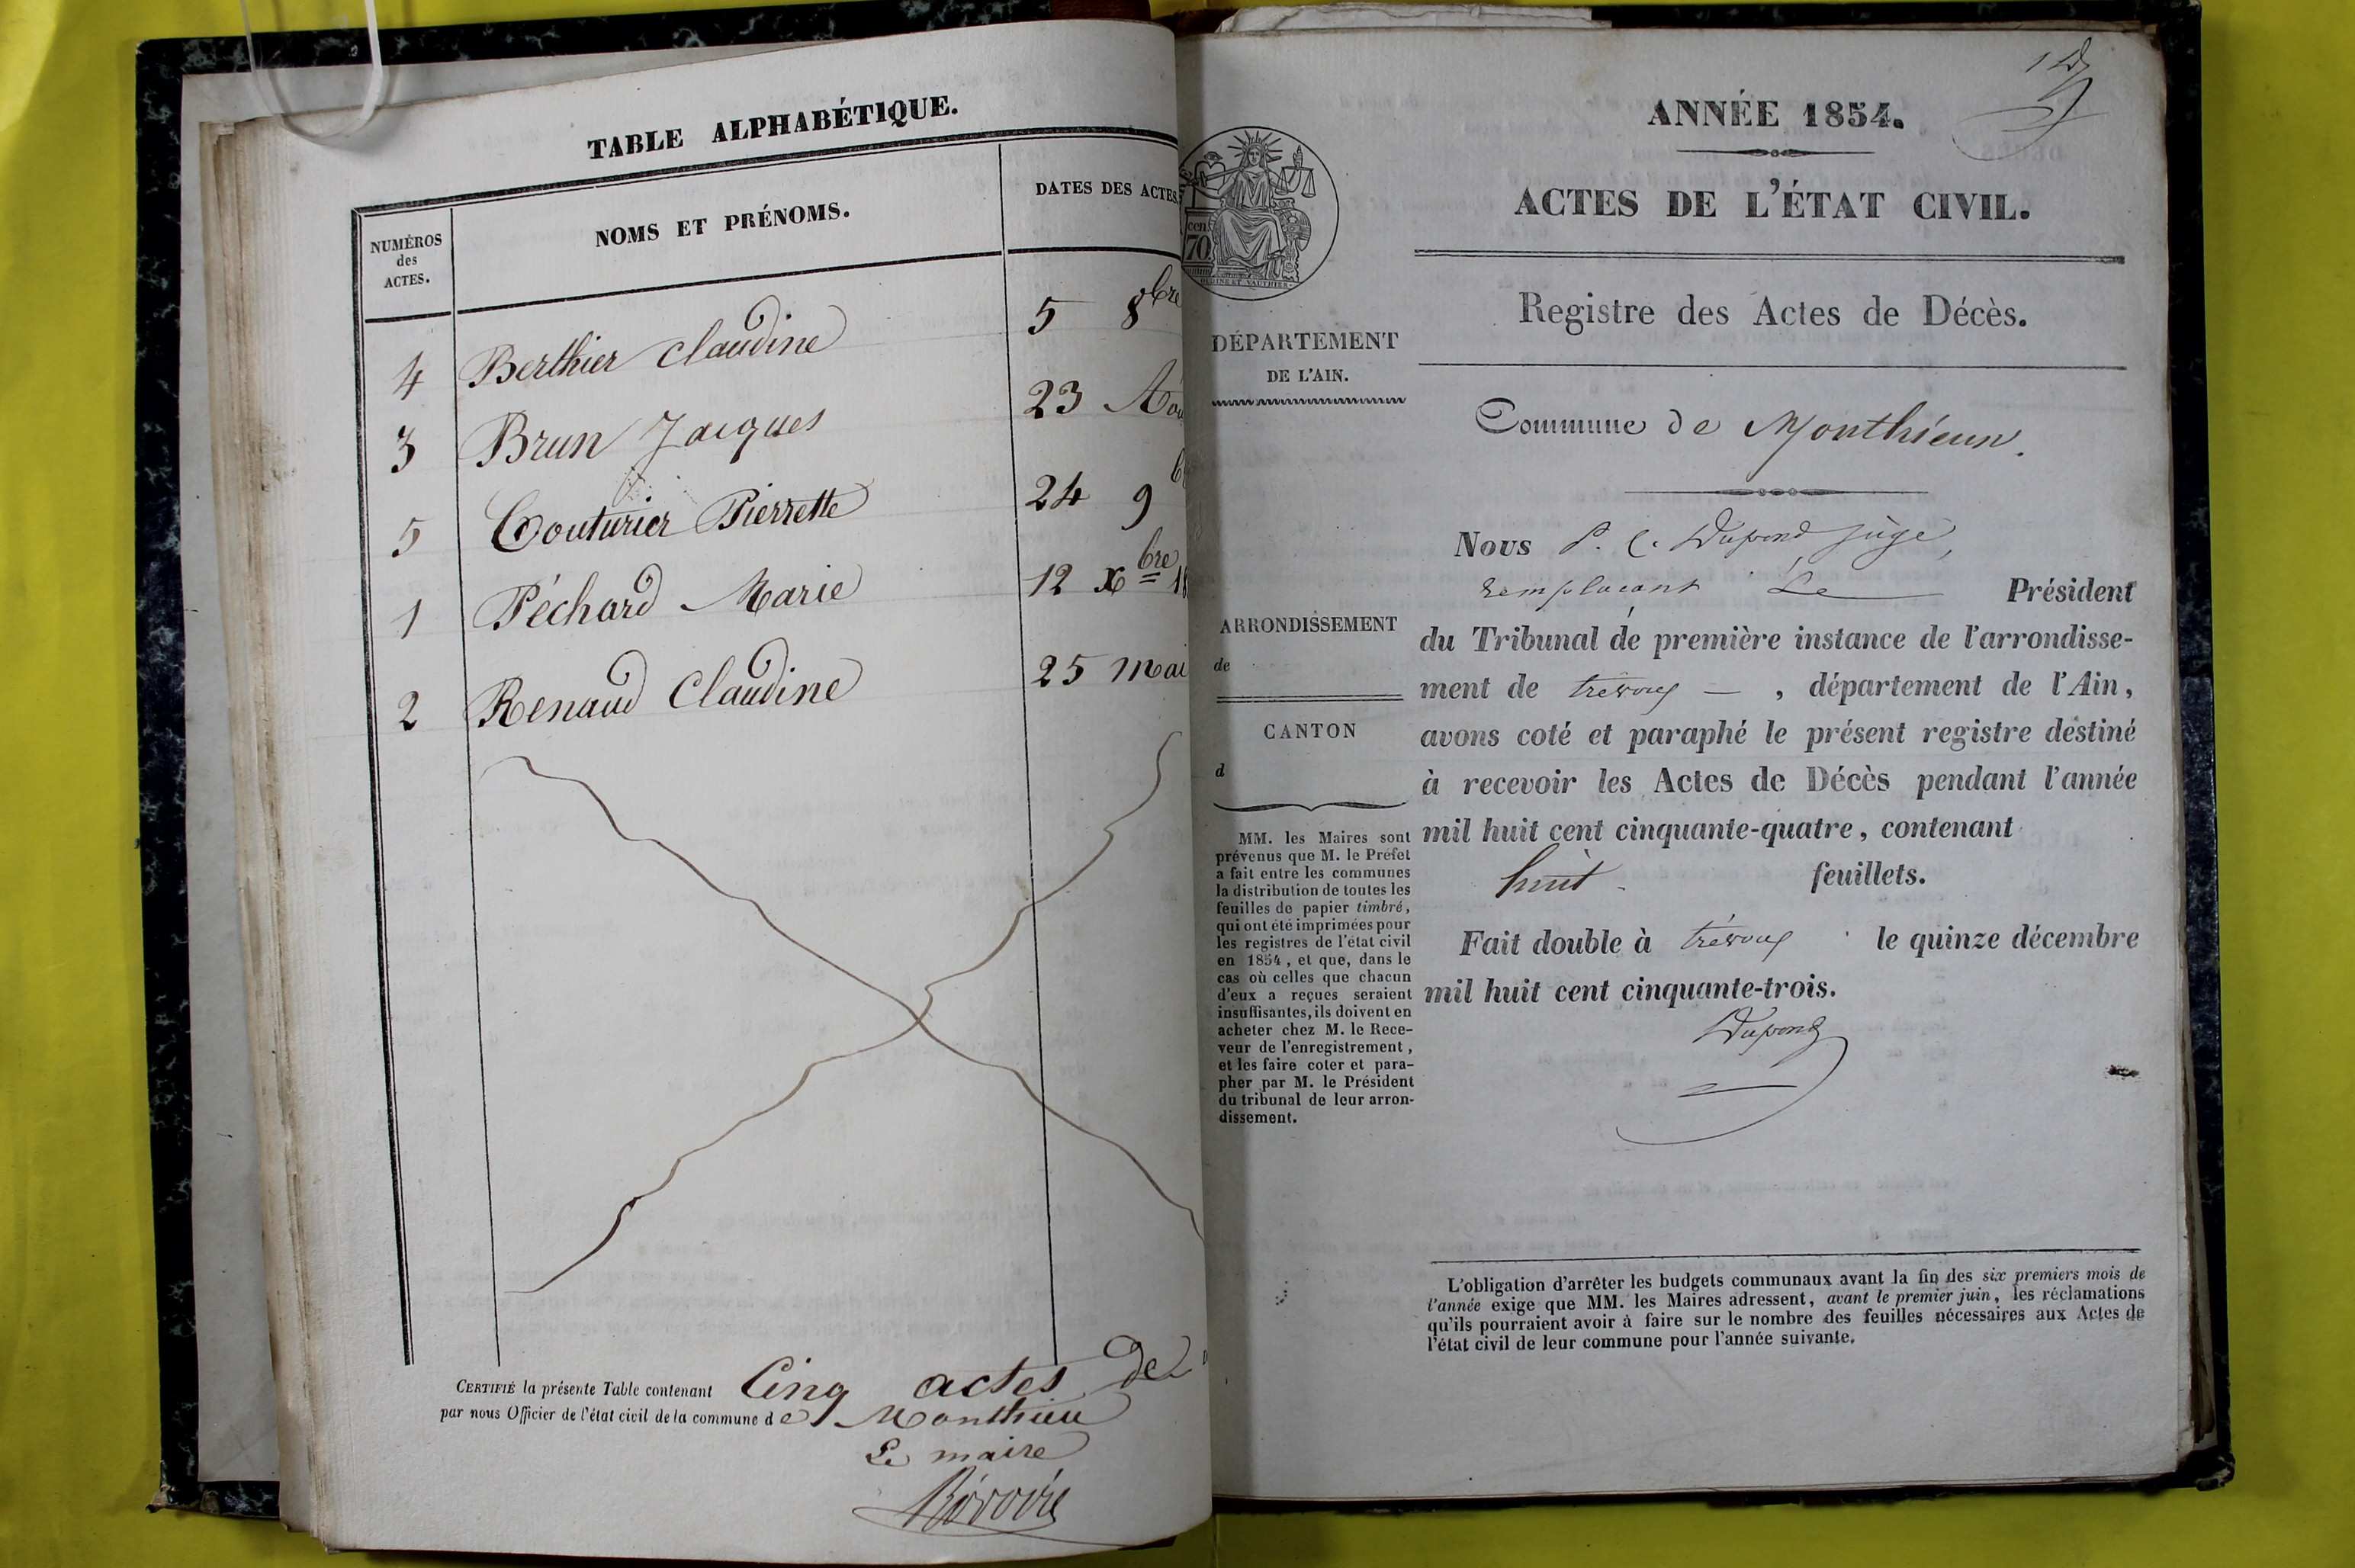 TABLE ALPHABÉTIQUE.
NUMÉROS
des
ACTES.
NOMS ET PRÉNOMS.
DATES DES ACTES.
4 Berthier Claudine 5 8bre
3 Brun Jacques 23 Aou
5 Couturier Pierrette 24 9b
1 Péchard Marie 12 xbre 18
2 Renaud Claudine 25 mai
CERTIFIÉ la présente Table contenant Cinq actes de
par nous Officier de l'état civil de la commune de Monthieu
Le maire
Révoire
1
ANNÉE 1854.
ACTES DE L'ÉTAT CIVIL.
Registre des Actes de Décès.
cent
70
DÉPARTEMENT
DE L'AIN.
ARRONDISSEMENT
de
CANTON
d
MM. les Maires sont
prévenus que M. le Préfet
a fait entre les communes
la distribution de toutes les
feuilles de papier timbré,
qui ont été imprimées pour
les registres de l'état civil
en 1854, et que, dans le
cas où celles que chacun
d'eux a reçues seraient
insuffisantes, ils doivent en
acheter chez M. le Rece-
veur de l'enregistrement,
et les faire coter et para-
pher par M. le Président
du tribunal de leur arron-
dissement.
Commune de Monthieux.
Nous P. C. Dupond juge,
remplaçant Le Président
du Tribunal de première instance de l'arrondisse-
ment de trévoux — , département de l'Ain,
avons coté et paraphé le présent registre destiné
à recevoir les Actes de Décès pendant l'année
mil huit cent cinquante-quatre, contenant
huit feuillets.
Fait double à trévoux le quinze décembre
mil huit cent cinquante-trois.
Dupond
L'obligation d'arrêter les budgets communaux avant la fin des six premiers mois de
l'année exige que MM. les Maires adressent, avant le premier juin, les réclamations
qu'ils pourraient avoir à faire sur le nombre des feuilles nécessaires aux Actes de
l'état civil de leur commune pour l'année suivante.